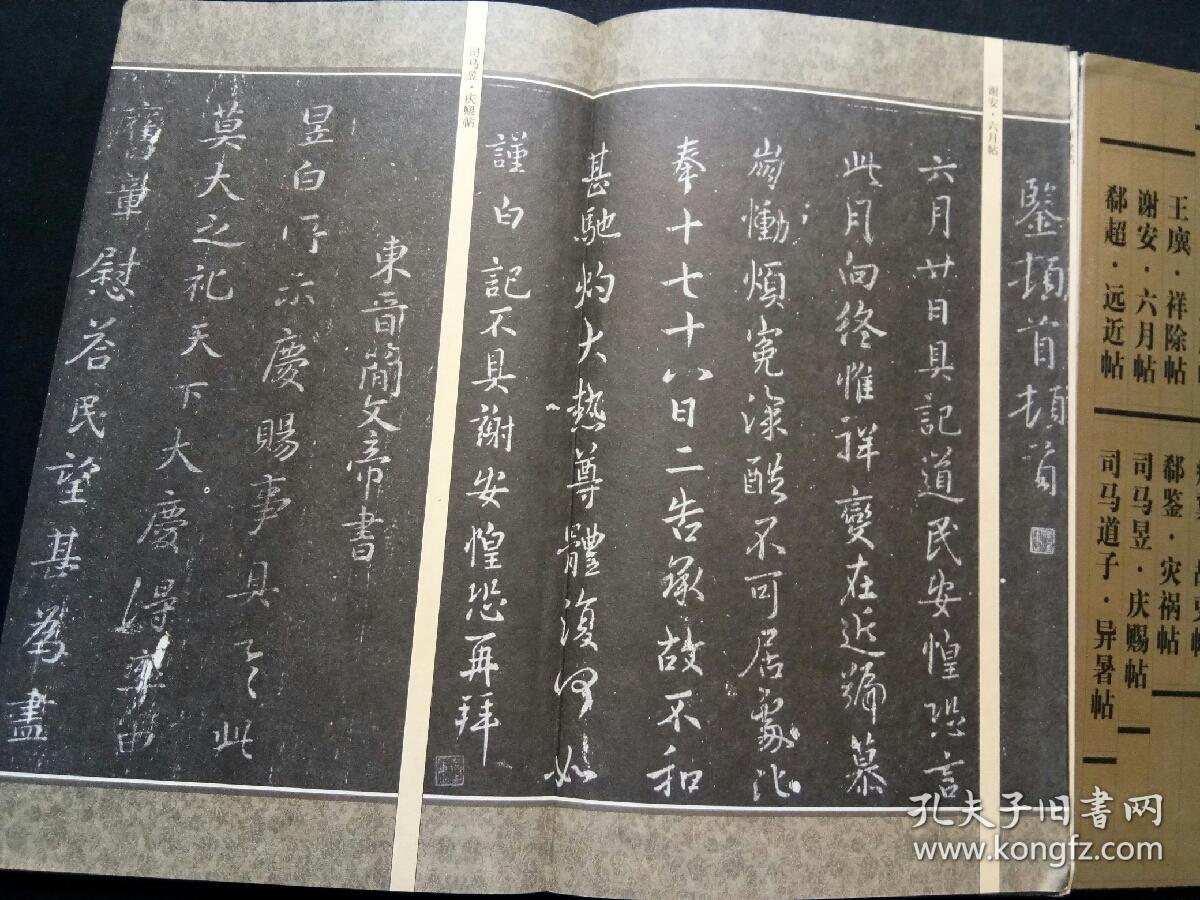 王廙·祥除帖
谢安·六月帖
郗超·远近帖
郗鉴·灾祸帖
司马昱·庆赐帖
司马道子·异暑帖
鑒頓首頓首
谢安·六月帖
六月廿日具記道民安惶恐言
此月向終惟祥變在近號慕
崩慟煩冤深酷不可居處比
奉十七十八日二告承故不和
甚馳灼大熱尊體復何如
謹白記不具謝安惶恐再拜
司马昱·庆赐帖
東晉簡文帝書
昱白所示慶賜事具之此
莫大之礼天下大慶得率由
舊章慰荅民望甚爲盡
孔夫子旧书网
www.kongfz.com